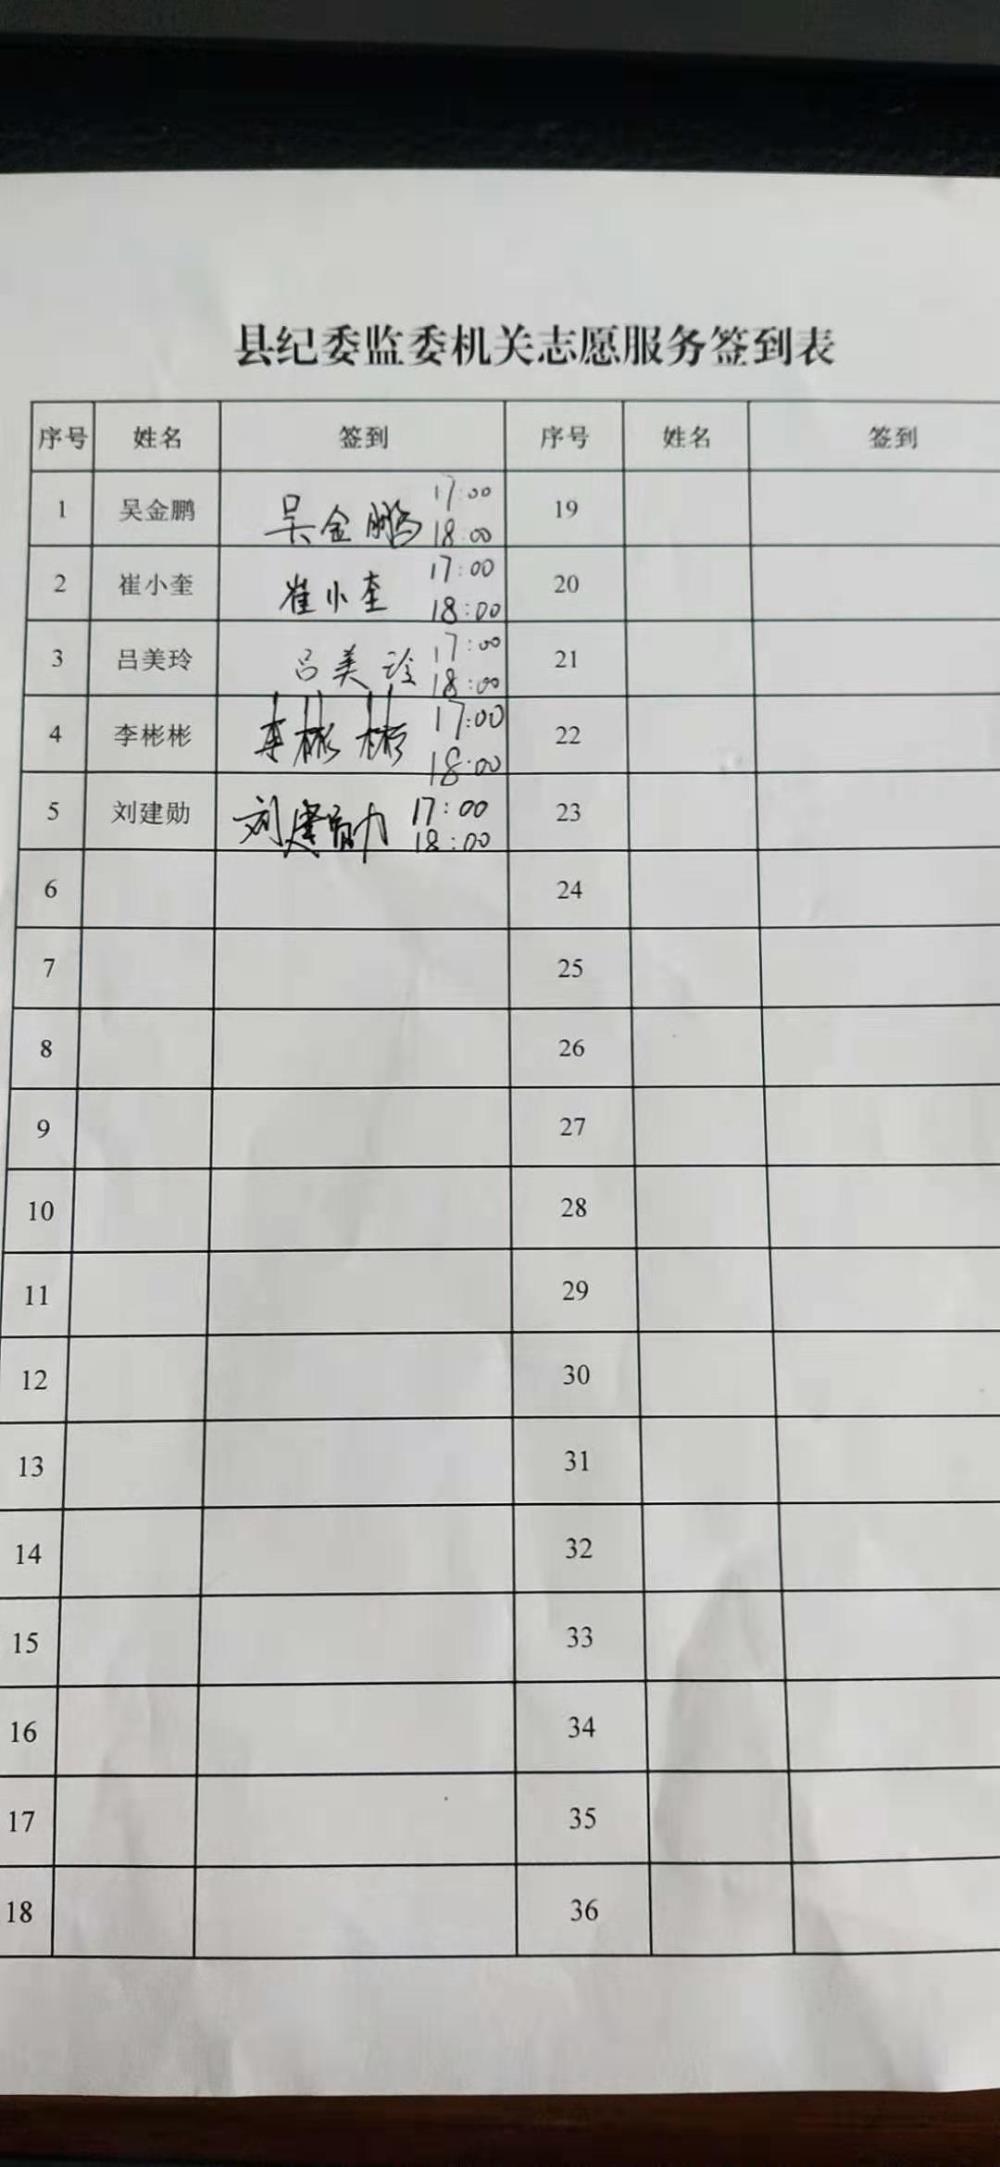 县纪委监委机关志愿服务签到表
序号 姓名 签到 序号 姓名 签到
1 吴金鹏 吴金鹏 17:00 18:00 19
2 崔小奎 崔小奎 17:00 18:00 20
3 吕美玲 吕美玲 17:00 18:00 21
4 李彬彬 李彬彬 17:00 18:00 22
5 刘建勋 刘建勋 17:00 18:00 23
6 24
7 25
8 26
9 27
10 28
11 29
12 30
13 31
14 32
15 33
16 34
17 35
18 36